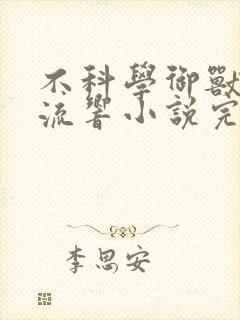 不科學御獸
流響小說完
李思安